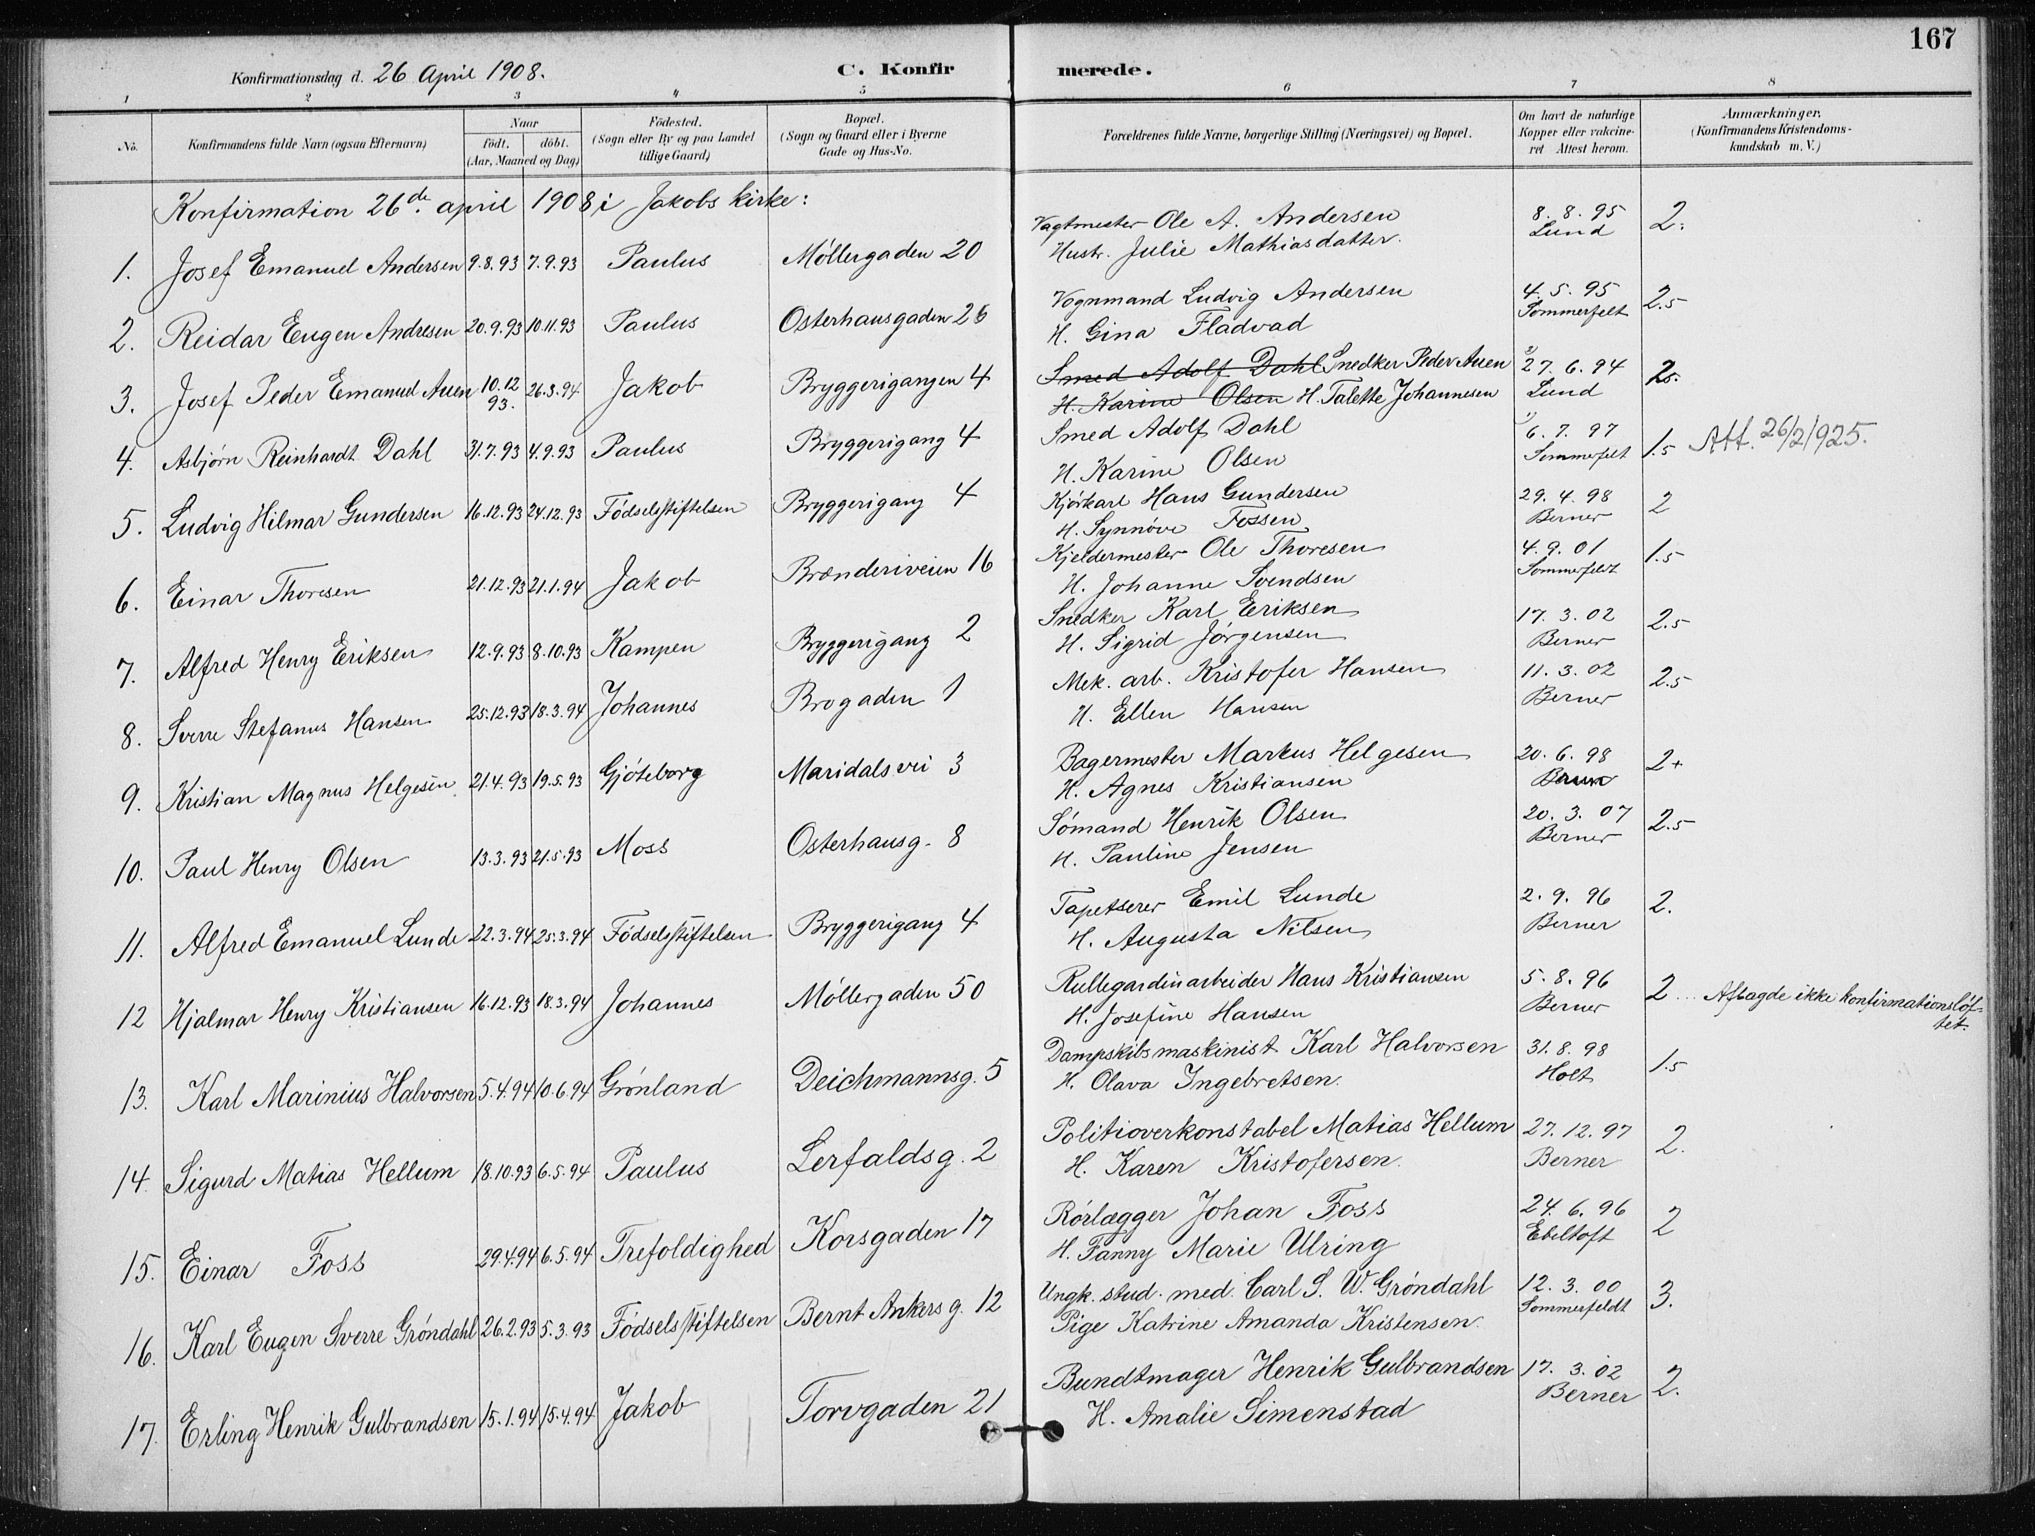 167
Konfirmationsdag d. 26 April 1908.
C. Konfirmerede.
1 2 3 4 5 6 7 8
No. Konfirmandens fulde Navn (ogsaa Efternavn) Naar født. døbt. (Aar, Maaned og Dag) Fødested. (Sogn eller By og paa Landet tillige Gaard) Bopæl. (Sogn og Gaard eller i Byerne Gade og Hus-No. Forældrenes fulde Navne, borgerlige Stilling (Næringsvei) og Bopæl. Om havt de naturlige Kopper eller vakcineret Attest herom. Anmærkninger. (Konfirmandens Kristendomskundskab m. V.)
Konfirmation 26de april 1908 i Jakobs kirke:
1. Josef Emanuel Andersen 9.8.93 7.9.93 Paulus Møllergaden 20 Vagtmester Ole A. Andersen 8.8.95 2.
Hustr. Julie Mathiasdatter. Lund
2. Reidar Eugen Andresen 20.9.93 10.11.93 Paulus Osterhausgaden 26 Vognmand Ludvig Andersen 4.5.95 2.5
H. Gina Fladvad Sommerfelt
3. Josef Peder Emanuel Auen 10.12 93. 26.3.94 Jakob Bryggerigangen 4 Smed Adolf Dahl Snedker Peder Auen 27.6.94 2.5
H. Karine Olsen H. Talette Johannesen Lund
4. Asbjørn Reinhardt Dahl 31.7.93 4.9.93 Paulus Bryggerigang 4 Smed Adolf Dahl 6.7.97 1.5 Att. 26/2 1925.
H. Karine Olsen Sommerfelt
5. Ludvig Hilmar Gundersen 16.12.93 24.12.93 Fødselsstiftelsen Bryggerigang 4 Kjørkarl Hans Gundersen 29.4.98 2
H. Synnøve Fossen Berner
6. Einar Thoresen 21.12.93 21.1.94 Jakob Brænderiveien 16 Kjeldermester Ole Thoresen 4.9.01 1.5
H. Johanne Svendsen Sommerfeldt
7. Alfred Henry Eriksen 12.9.93 8.10.93 Kampen Bryggerigang 2 Snedker Karl Eriksen 17.3.02 2.5
H. Sigrid Jørgensen Berner
8. Sverre Stefanus Hansen 25.12.93 18.3.94 Johannes Brogaden 1 Mek. arb. Kristofer Hansen 11.3.02 2.5
H. Ellen Hansen Berner
9. Kristian Magnus Helgesen 21.4.93 19.5.93 Gjøteborg Maridalsvei 3 Bagermester Markus Helgesen 20.6.98 2+
H. Agnes Kristiansen Berner
10. Paul Henry Olsen 13.3.93 21.5.93 Moss Osterhausg. 8 Sømand Henrik Olsen 20.3.07 2.5
H. Pauline Jensen Berner
11. Alfred Emanuel Lunde 22.3.94 25.3.94 Fødselsstiftelsen Bryggerigang 4 Tapetserer Emil Lunde 2.9.96 2.
H. Augusta Nilsen Berner
12 Hjalmar Henry Kristiansen 16.12.93 18.3.94 Johannes Møllergaden 50 Rullegardinarbeider Hans Kristiansen 5.8.96 2 Aflagde ikke konfirmationsløftet.
H. Josefine Hansen Berner
13. Karl Marinius Halvorsen 5.4.94 10.6.94 Grønland Deichmannsg. 5 Dampskibsmaskinist Karl Halvorsen 31.8.98 1.5
H. Olava Ingebretsen. Holt
14. Sigurd Matias Hellum 18.10.93 6.5.94 Paulus Lerfaldsg. 2 Politioverkonstabel Matias Hellum 27.12.97 2.
H. Karen Kristofersen. Berner
15. Einar Foss 29.4.94 6.5.94 Trefoldighed Korsgaden 17 Rørlægger Johan Foss 24.6.96 2
H. Fanny Marie Ulring Ebeltoft
16. Karl Eugen Sverre Grøndahl 26.2.93 5.3.93 Fødselsstiftelsen Bernt Ankers g. 12 Ungk. stud. med. Carl S. W. Grøndahl 12.3.00 3.
Pige Katrine Amanda Kristensen. Sommerfeldt
17. Erling Henrik Gulbrandsen 15.1.94 15.4.94 Jakob Torvgaden 21 Bundtmager Henrik Gulbrandsen 17.3.02 2.
H. Amalie Simenstad Berner